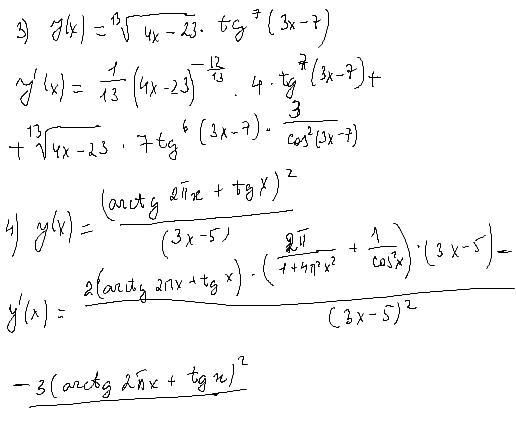 3) y(x) = ¹³√(4x – 23) · tg⁷(3x – 7)
y'(x) = 1/13 (4x – 23)^(–12/13) · 4 · tg⁷(3x – 7) +
+ ¹³√(4x – 23) · 7 tg⁶(3x – 7) · 3/cos²(3x – 7)
4) y(x) = (arctg 2πx + tg x)² / (3x – 5)
y'(x) = 2(arctg 2πx + tg x) · (2π/(1 + 4π²x²) + 1/cos²x) · (3x – 5) – / (3x – 5)²
– 3(arctg 2πx + tg x)²